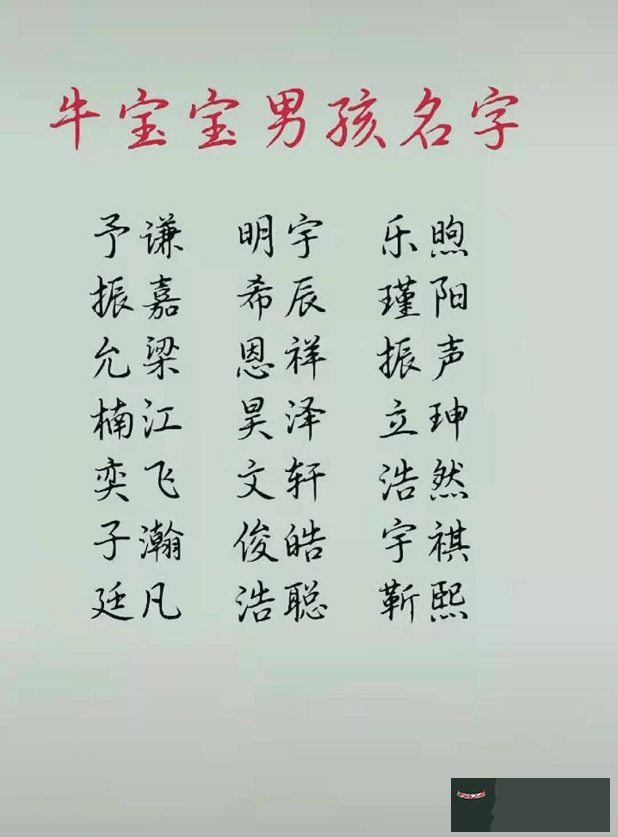 牛宝宝男孩名字
予谦 明宇 乐煦
振嘉 希辰 瑾阳
允梁 恩祥 振声
楠江 昊泽 立珅
奕飞 文轩 浩然
子瀚 俊皓 宇祺
廷凡 浩聪 靳熙